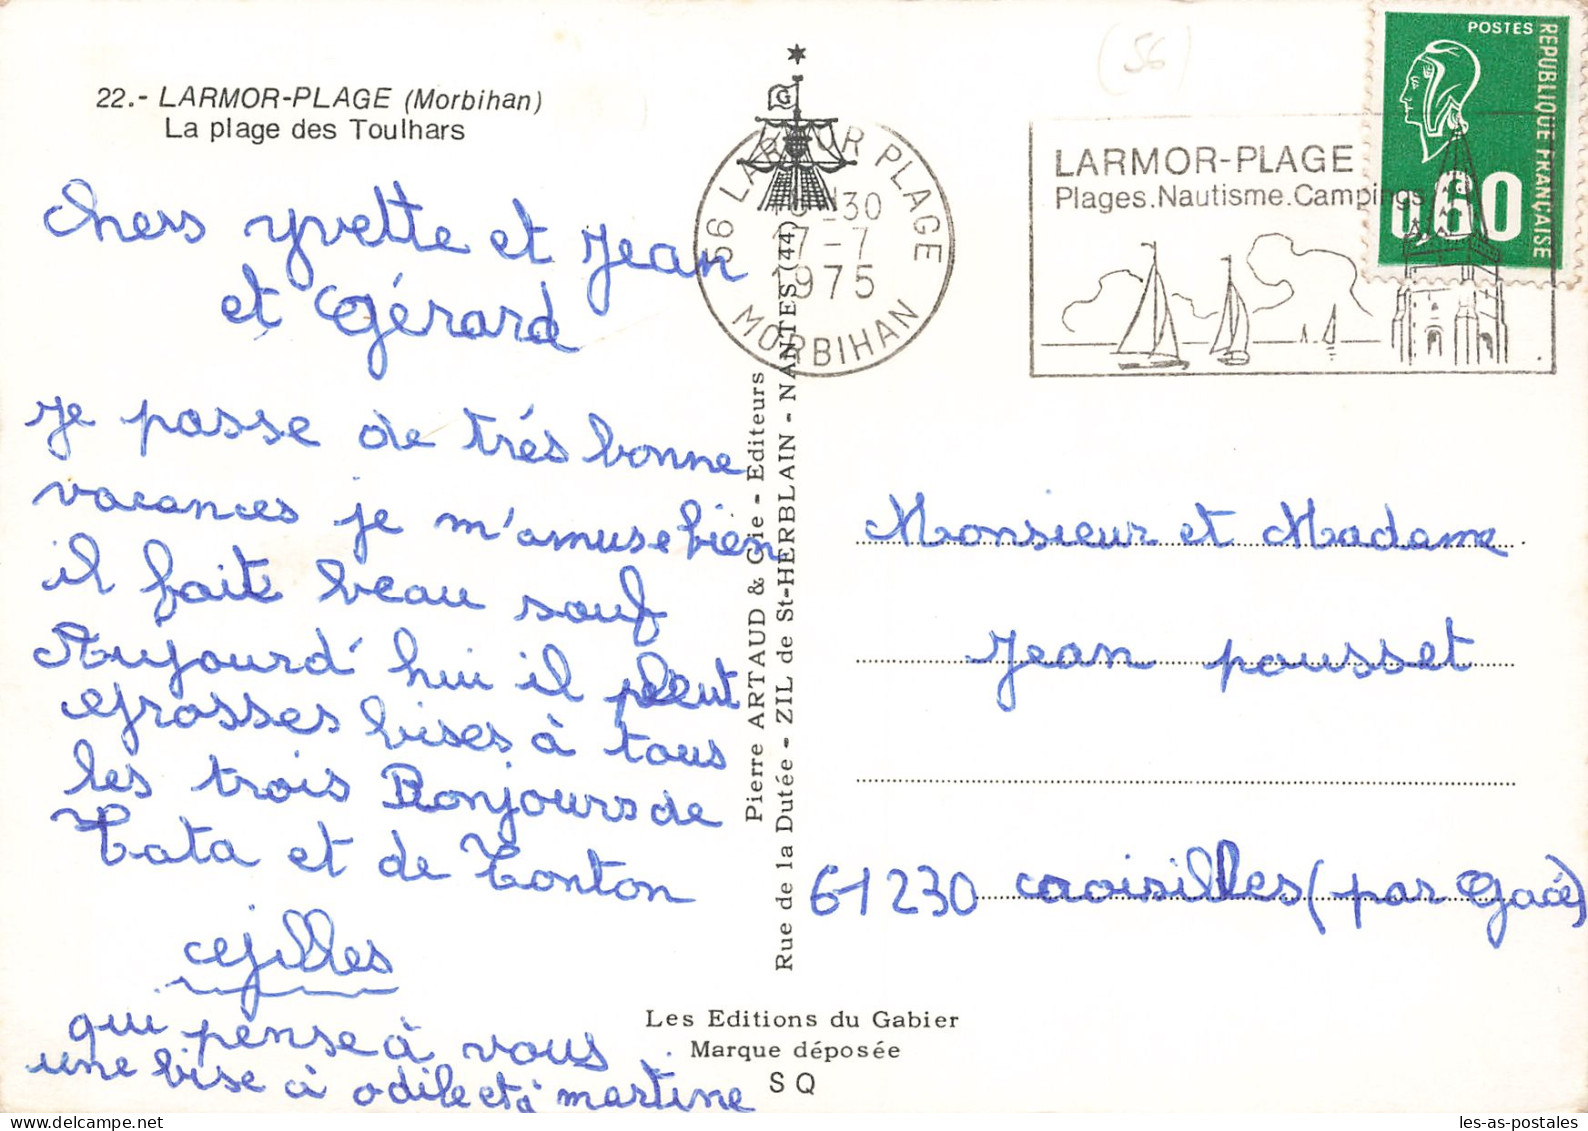 22.- LARMOR-PLAGE (Morbihan)
La plage des Toulhars
chers yvette et Jean
et Gérard
Je passe de trés bonne
vacances je m'amuse bien
il fait beau souf
Aujourd'hui il pleut
Grosses bises à tous
les trois Bonjours de
Tata et de Tonton
Gilles
qui pense à vous
une bise à odile et à martine
Pierre ARTAUD & Cie - Editeurs
Rue de la Dutée - ZIL de St-HERBLAIN - NANTES (44)
Les Editions du Gabier
Marque déposée
S Q
G
(56)
56 LARMOR PLAGE
30
7-7
1975
MORBIHAN
LARMOR-PLAGE
Plages.Nautisme.Campings
POSTES
REPUBLIQUE FRANÇAISE
0,60
Monsieur et Madame
Jean pousset
61230 croisilles (par Gacé)
les-as-postales